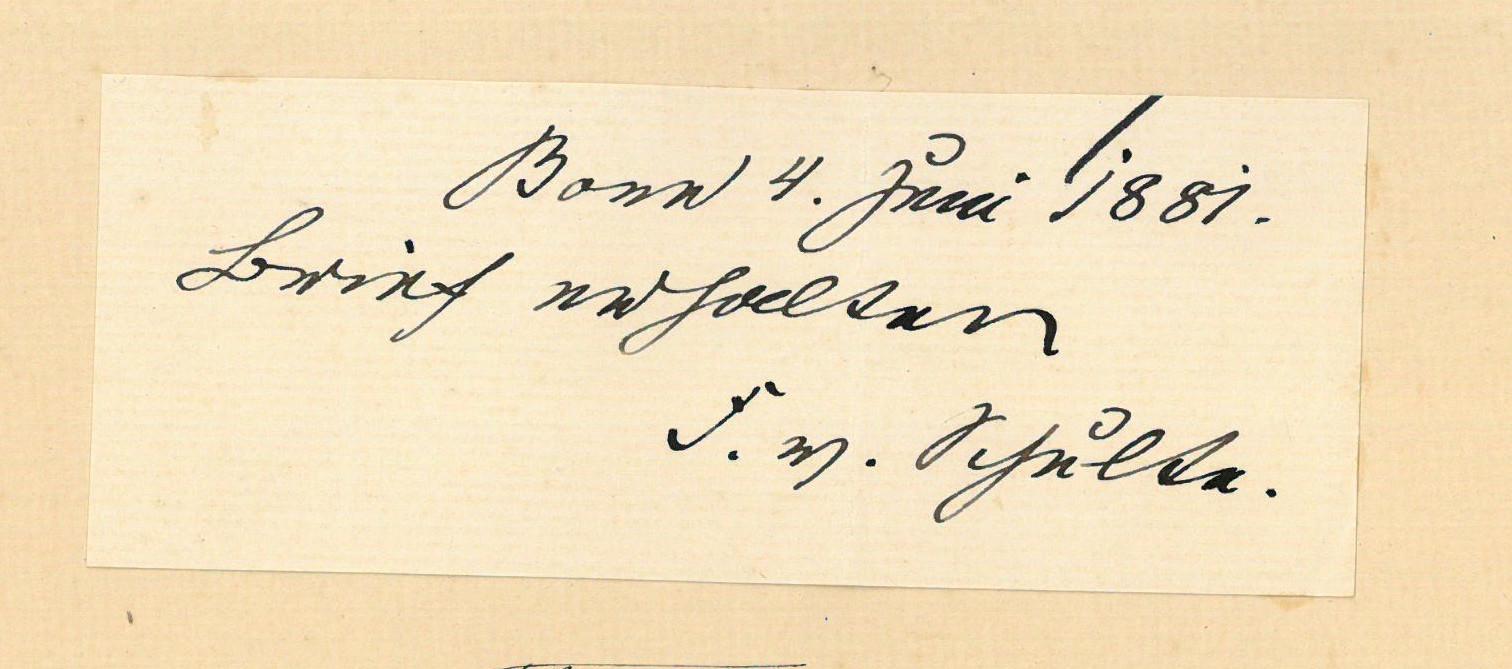 Bonn 4. Juni 1881.
Brief erhalten
F. v. Schulte.